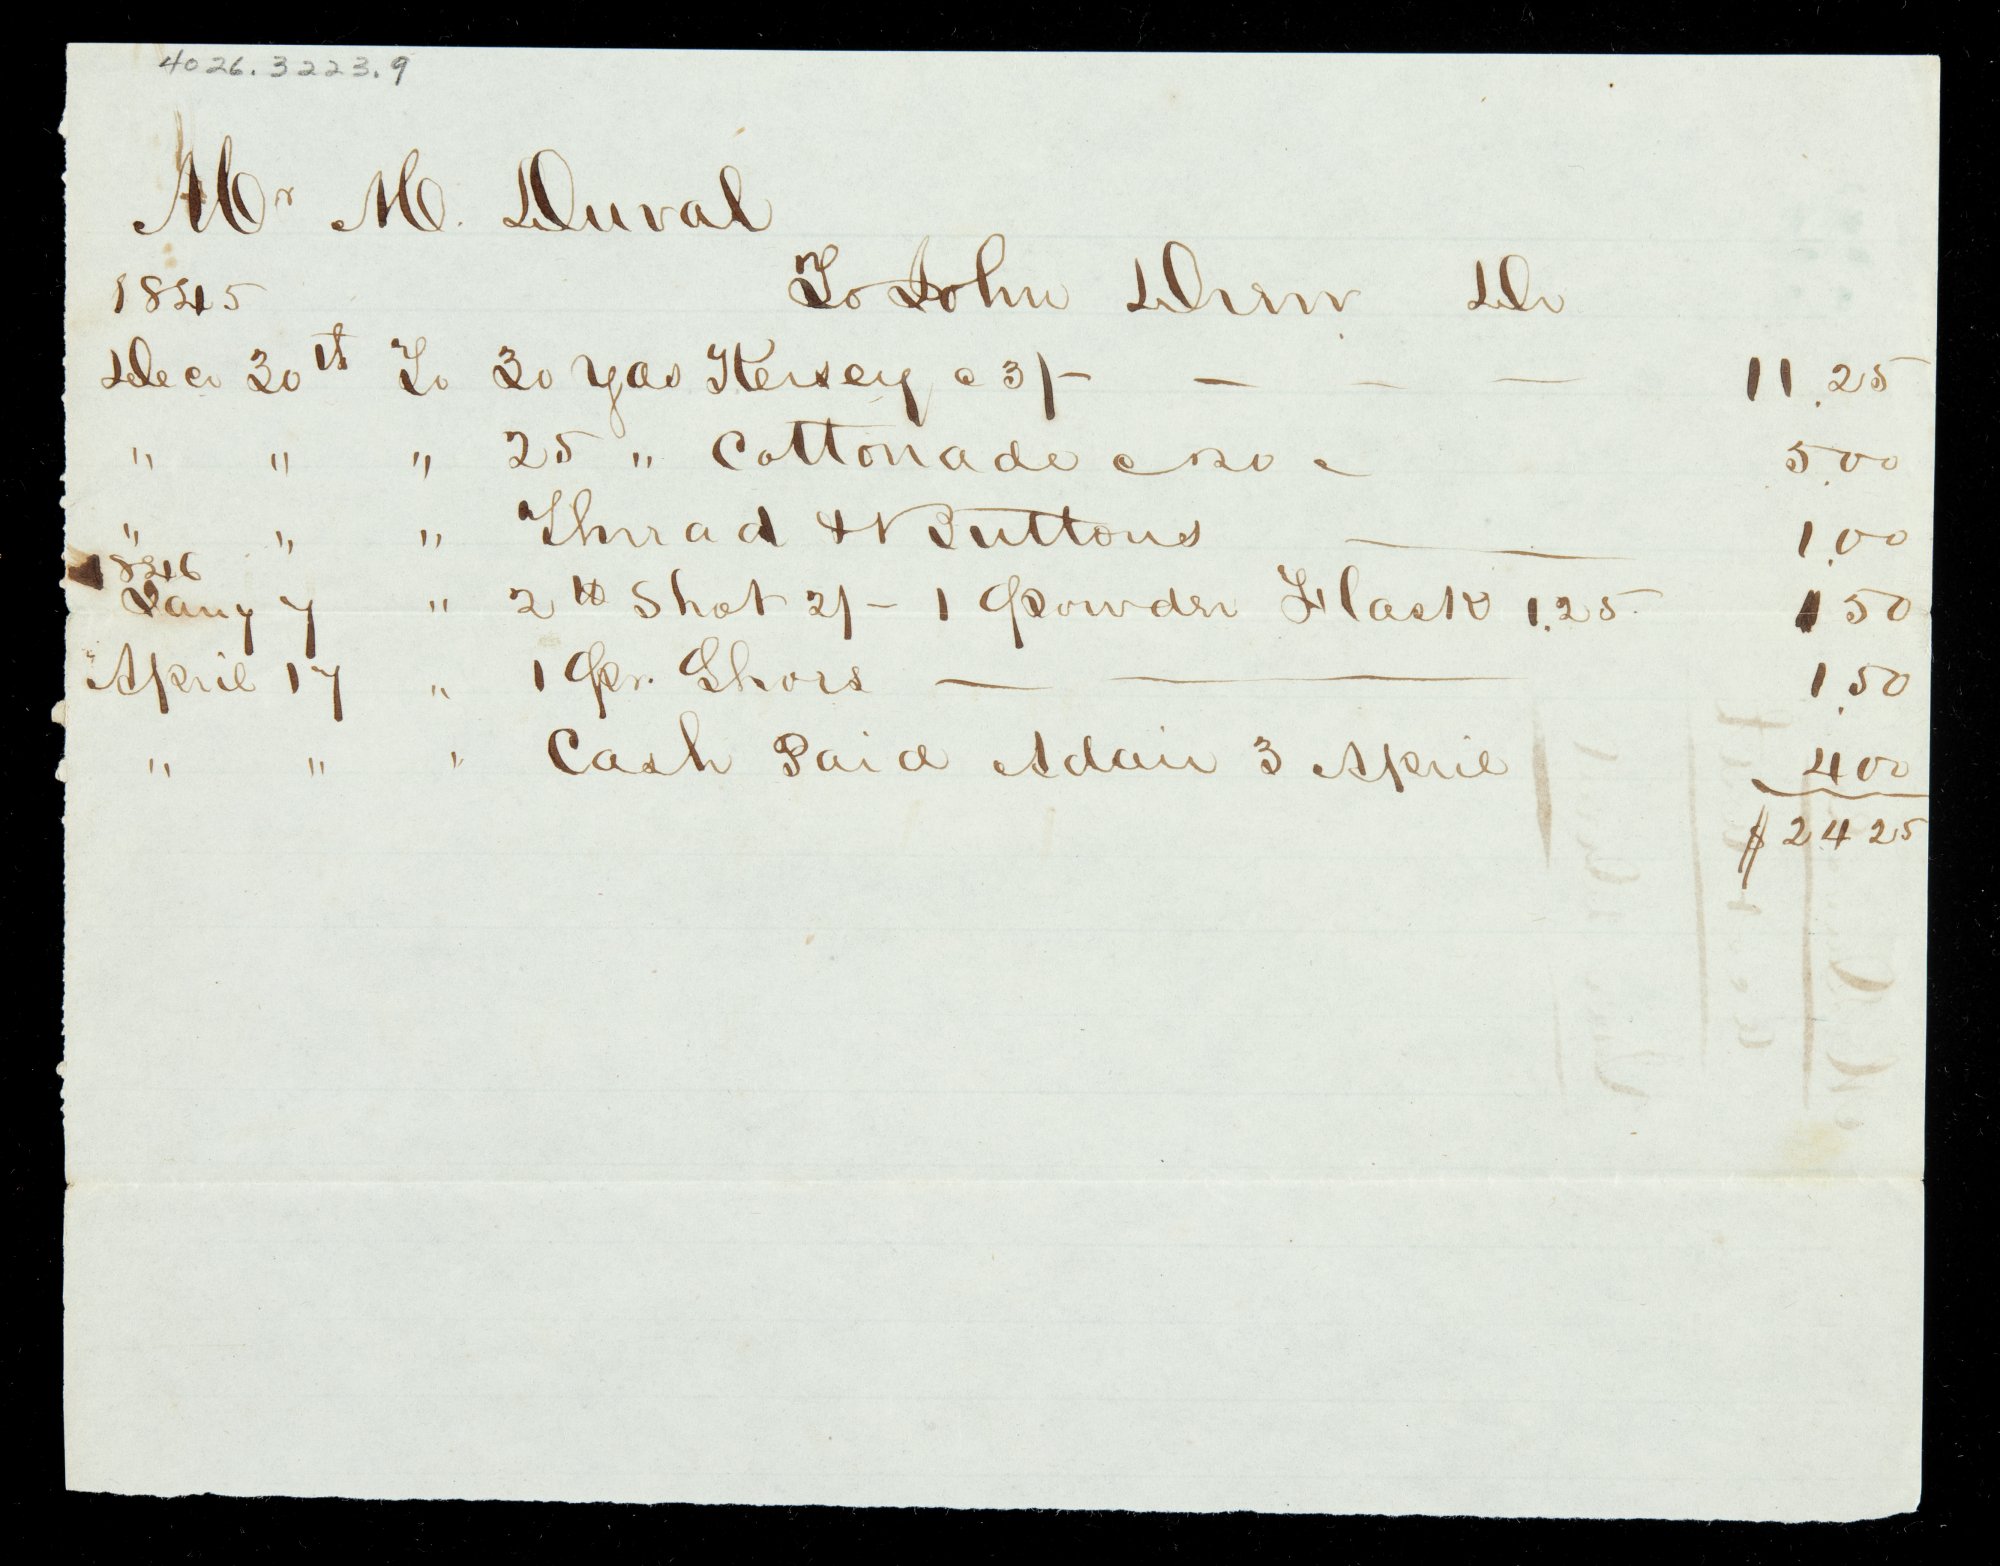 4026.3223.9
Mr M. Duval
1845 To John Drew Dr
Dec 30th To 30 yds Kersey @ 3/- 11.25
" " " 25 " Cottonade @ 20 c 5.00
" " " Thread & Buttons 1.00
1846
Jany 7 " 2 lb Shot 2/- 1 Powder Flask 1.25 1 50
April 17 " 1 Pr. Shoes 1.50
" " " Cash Paid Adair 3 April 4 00
$ 24 25